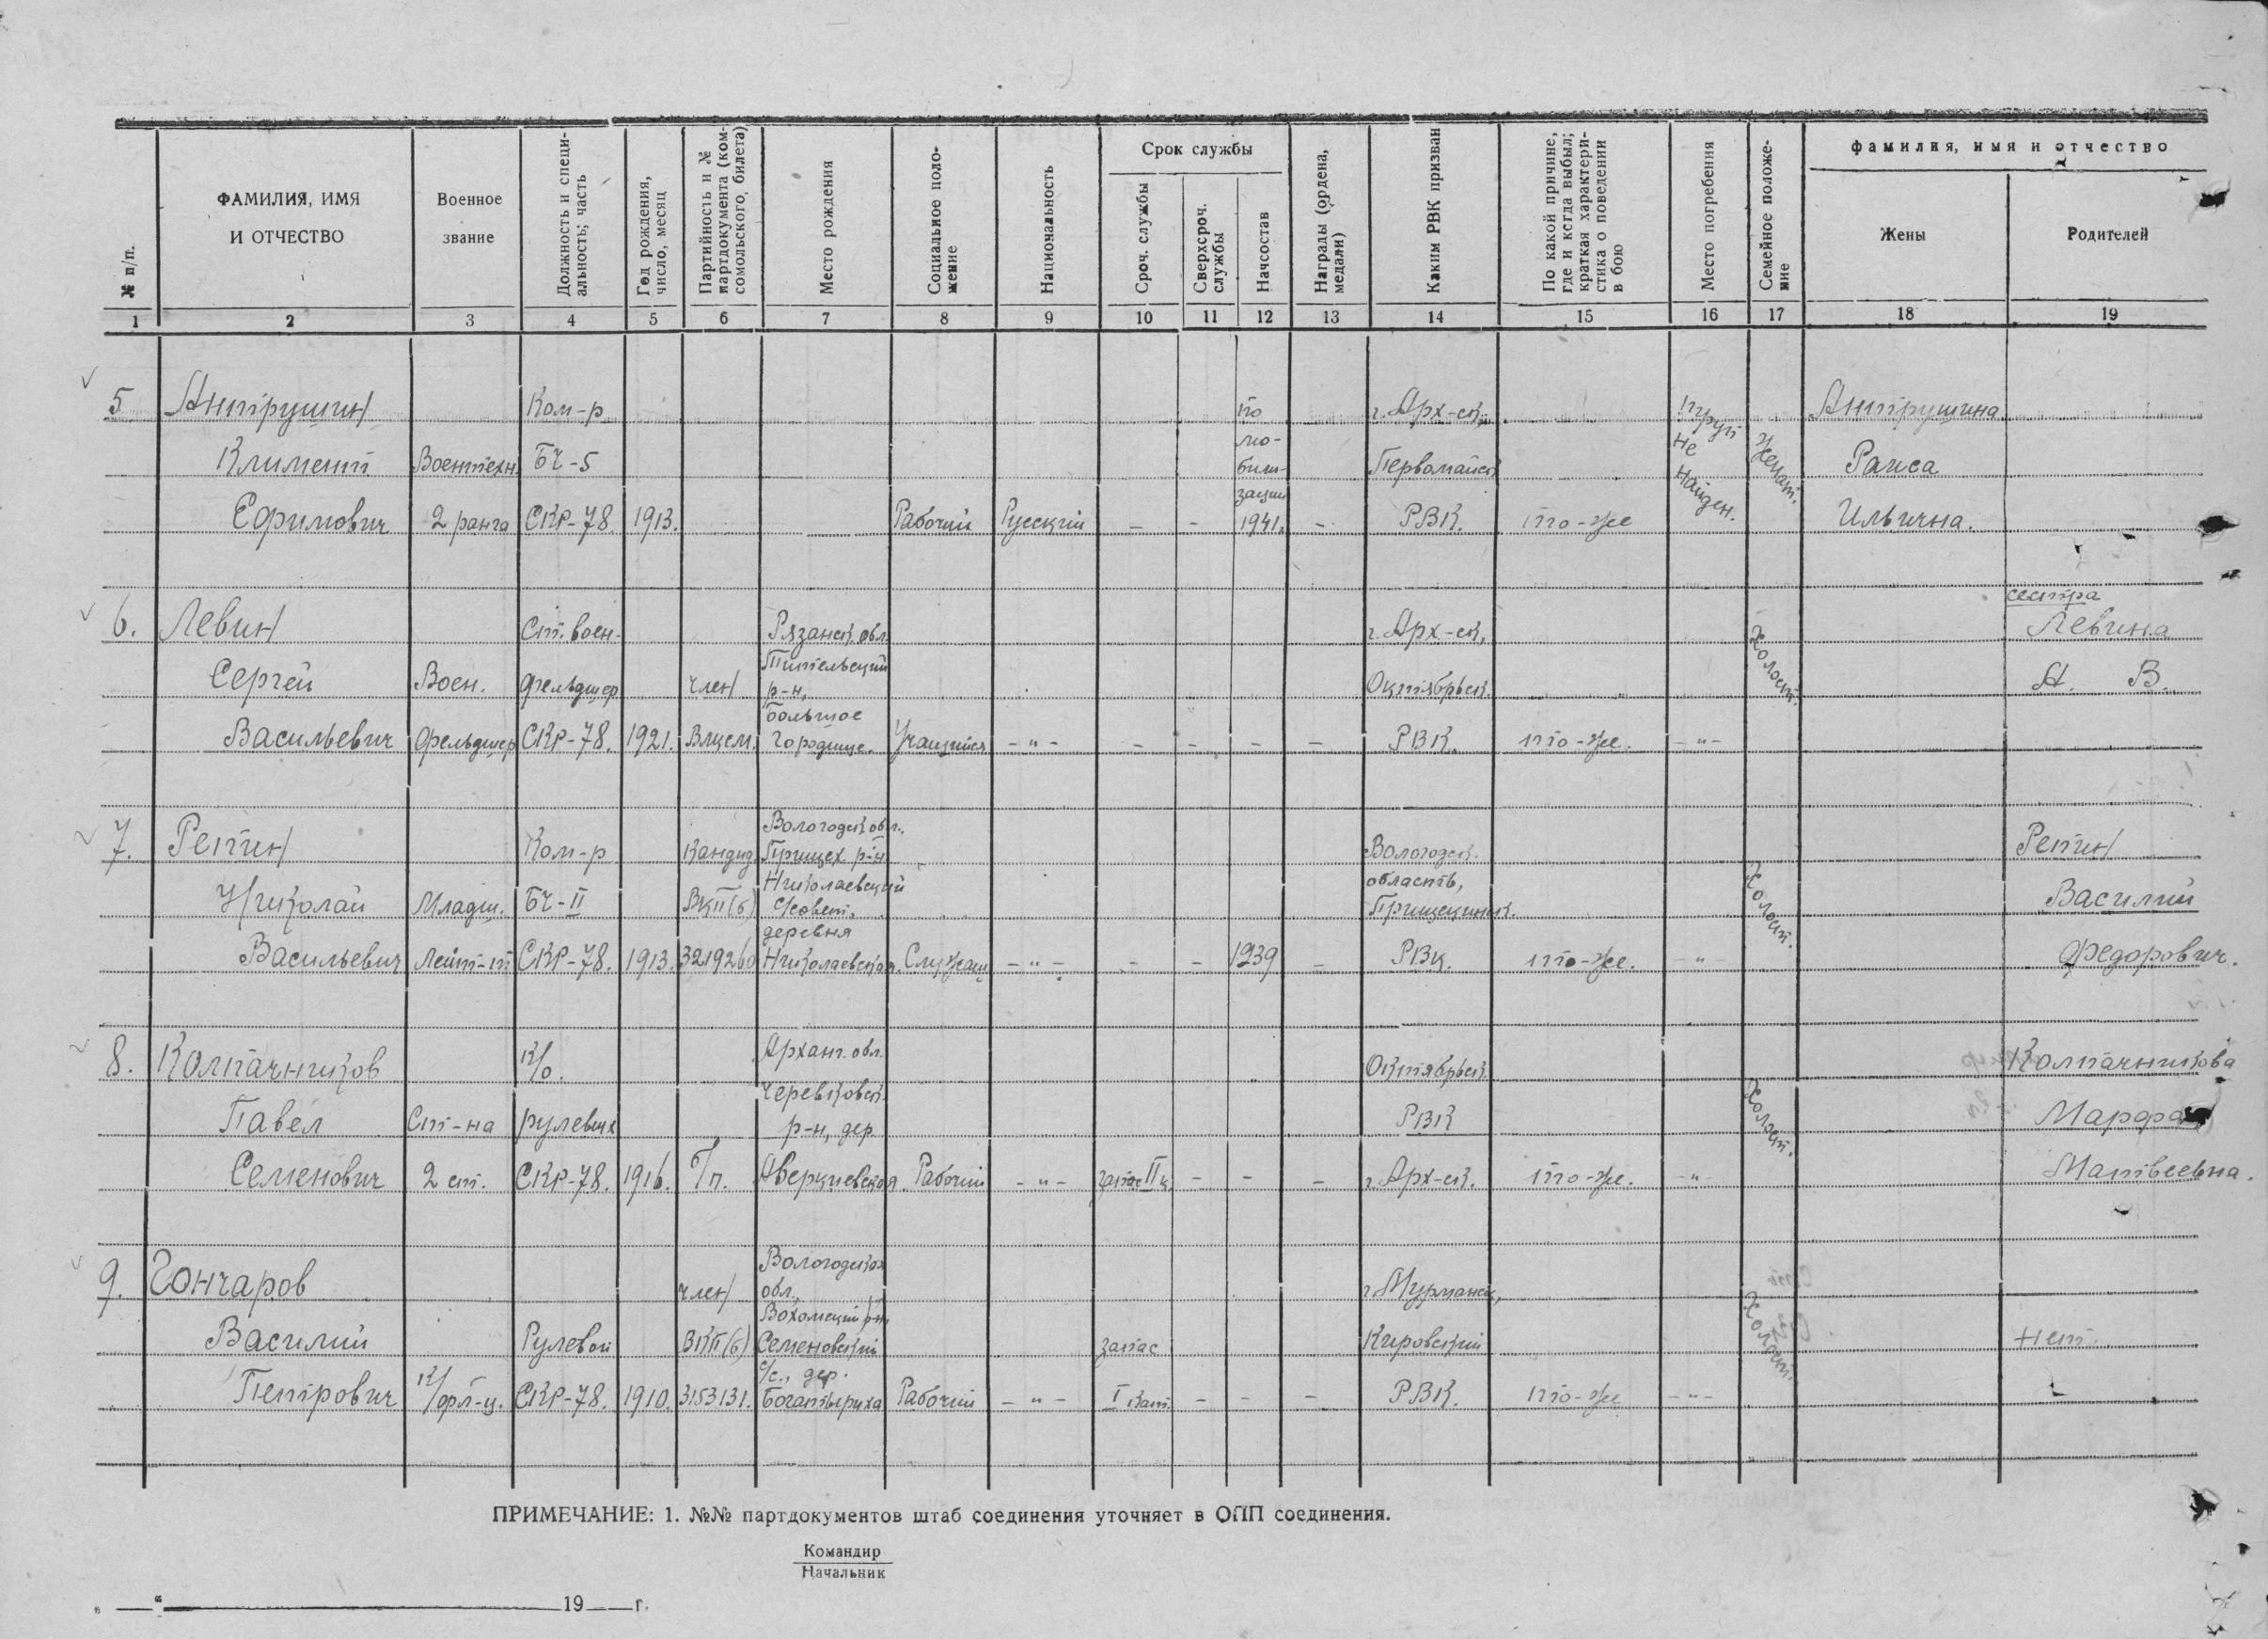 Срок службы
фамилия, имя и отчество
№ п/п.
ФАМИЛИЯ, ИМЯ
И ОТЧЕСТВО
Военное
звание
Должность и специ-
альность; часть
Год рождения,
число, месяц
Партийность и №
партдокумента (ком-
сомольского, билета)
Место рождения
Социальное поло-
жение
Национальность
Сроч. службы
Сверхсроч.
службы
Начсостав
Награды (ордена,
медали)
Каким РВК призван
По какой причине,
где и когда выбыл;
краткая характери-
стика о поведении
в бою
Место погребения
Семейное положе-
ние
Жены
Родителей
1 2 3 4 5 6 7 8 9 10 11 12 13 14 15 16 17 18 19
5 Антрушин Ком-р по г. Арх-ск, труп Антрушина
Климент Воентехн. БЧ-5 мо-били- Первомайск. не Женат. Раиса
Ефимович 2 ранга СКР-78. 1913. Рабочий Русский - - зации 1941г. - РВК. то-же найден. Ильична.
сестра
6. Левин Ст. воен. Рязанск. обл. г. Арх-ск, Холост. Левина
Сергей Воен. фельдшер член р-н, Октябрьск. А. В.
Большое
Васильевич фельдшер СКР-78. 1921. Городище. Учащийся -"- - - - - РВК. то-же. -"-
Вологодск. обл.,
7. Репин Ком-р Кандид. р-н Вологодск. Репин
Николаевский область,
Николай Младш. БЧ-II ВКП(б) с/совет, Холост. Василий
деревня
Васильевич Лейт-т СКР-78. 1913. 3219260 Николаевская. Служащ. -"- - - 1939 - РВК. то-же. -"- Федорович.
8. Колпачников К/о. Арханг. обл. Октябрьск. Колпачникова
Черевковск.
Павел Ст-на рулевых р-н, дер. РВК Холост. Марфа
Семенович 2 ст. СКР-78. 1916. б/п. Аверкиевская. Рабочий -"- запас II к. - - - г. Арх-ск. то-же. -"- Матвеевна.
Вологодская
9. Гончаров член обл., г. Мурманск,
Вохомский р-н,
Василий Рулевой ВКП(б) Семеновский запас Кировский Холост. Нет.
с/с., дер.
Петрович К/фл-ц. СКР-78. 1910. 3153131. Богатыриха Рабочий -"- I кат. - - - РВК. то-же -"- -
ПРИМЕЧАНИЕ: 1. №№ партдокументов штаб соединения уточняет в ОПП соединения.
Командир
Начальник
„ “ 19 г.